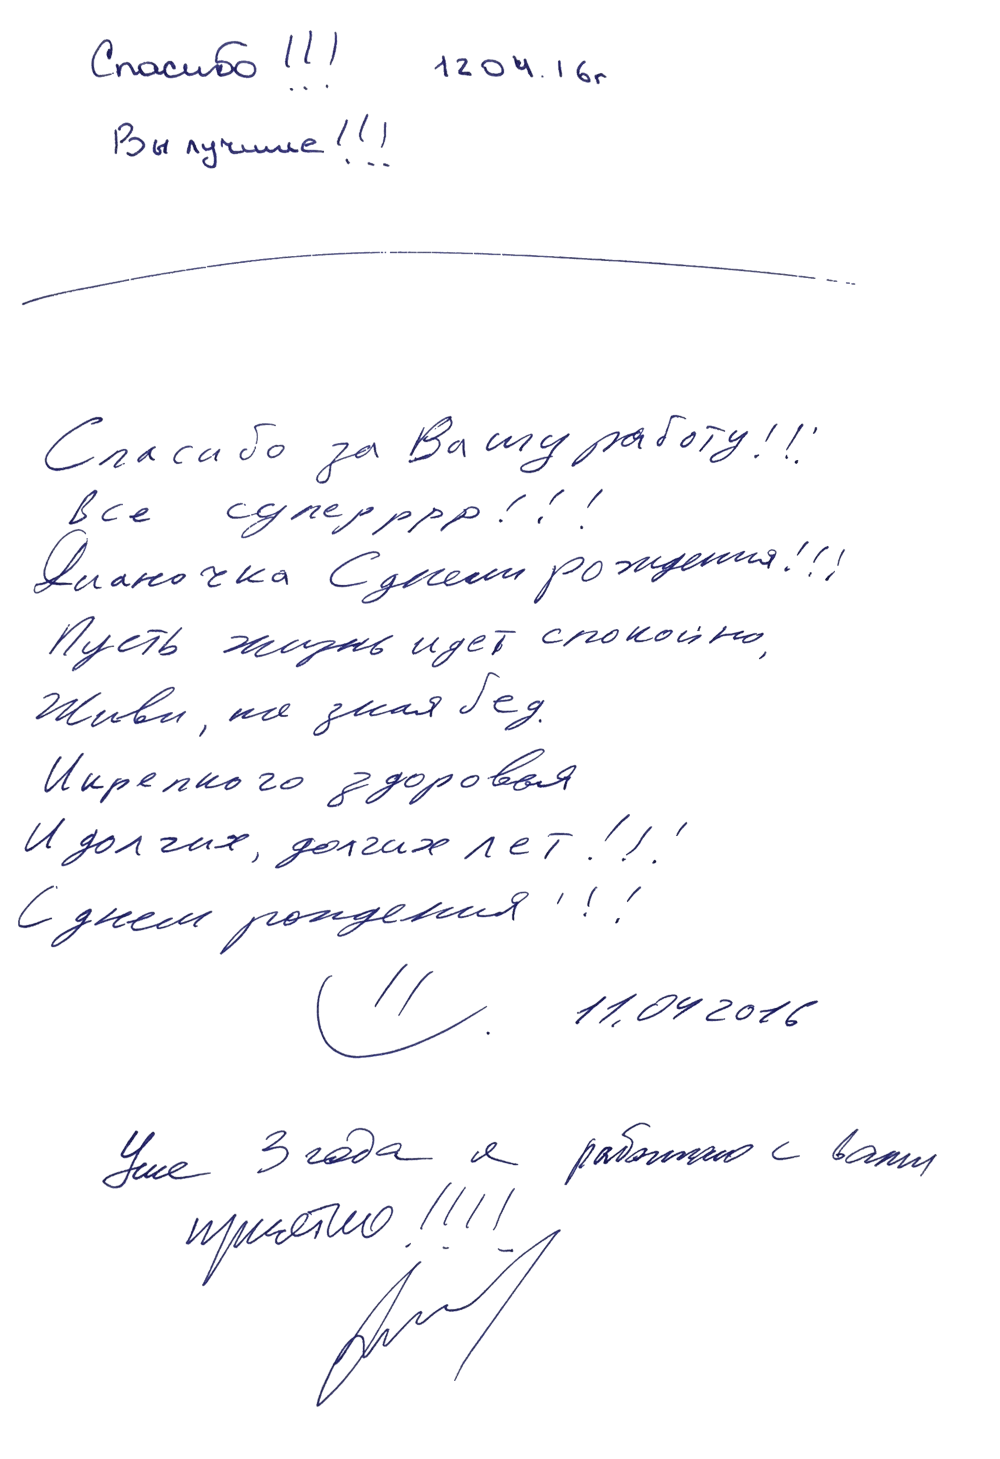 Спасибо!!! 12 04.16г
Вы лучшие!!!
Спасибо за Вашу работу!!!
Все суперррр!!!
Дианочка С днем рождения!!!
Пусть жизнь идет спокойно,
Живи, не зная бед.
И крепкого здоровья
И долгих, долгих лет!!!
С днем рождения!!!
11.04 2016
Уже 3 года я работаю с вами
приятно!!!!